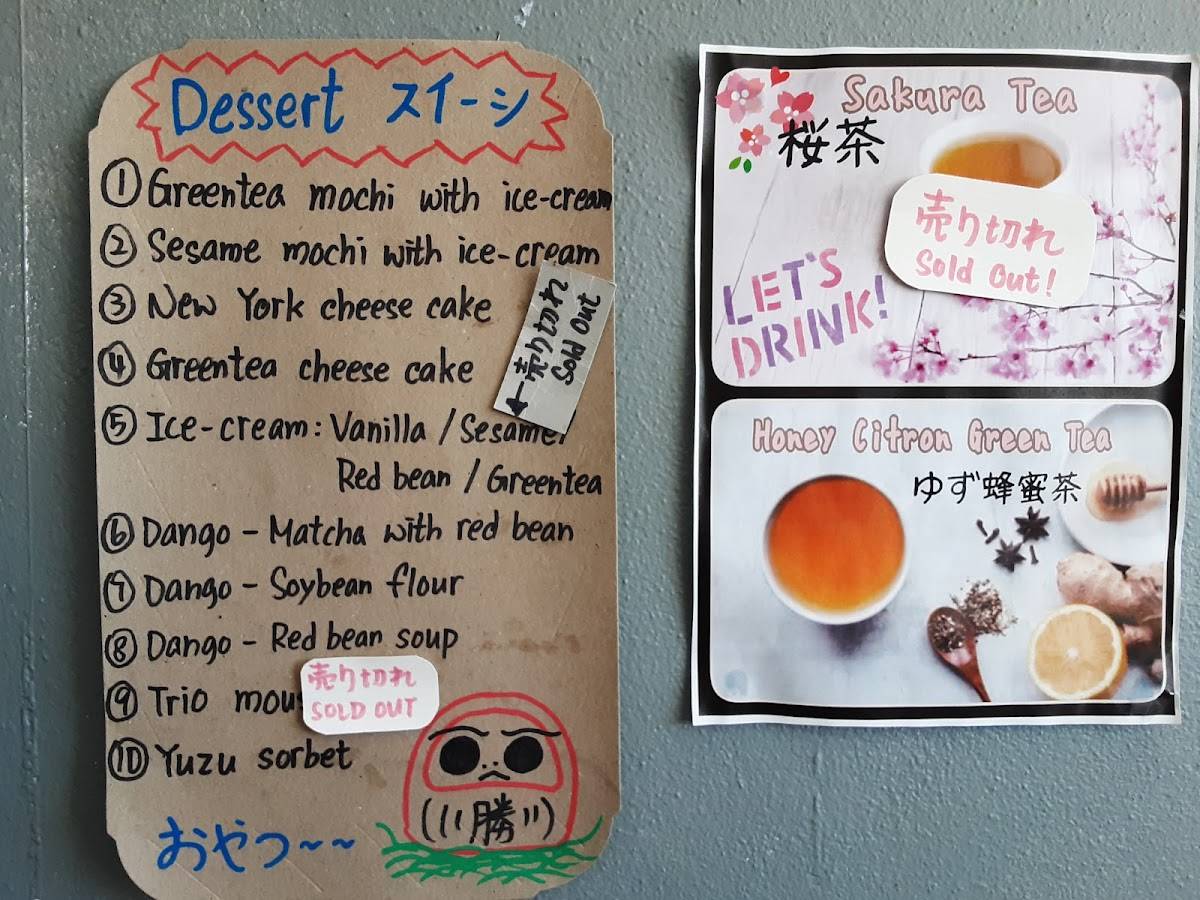 Dessert スイーシ
① Greentea mochi with ice-cream
② Sesame mochi with ice-cream
③ New York cheese cake
④ Greentea cheese cake
←売り切れ
Sold Out
⑤ Ice-cream: Vanilla / Sesame/
Red bean / Greentea
⑥ Dango - Matcha with red bean
⑦ Dango - Soybean flour
⑧ Dango - Red bean soup
⑨ Trio mous
売り切れ
SOLD OUT
⑩ Yuzu sorbet
おやつ~~
勝
Sakura Tea
桜茶
売り切れ
Sold Out!
LET'S
DRINK!
Honey Citron Green Tea
ゆず蜂蜜茶